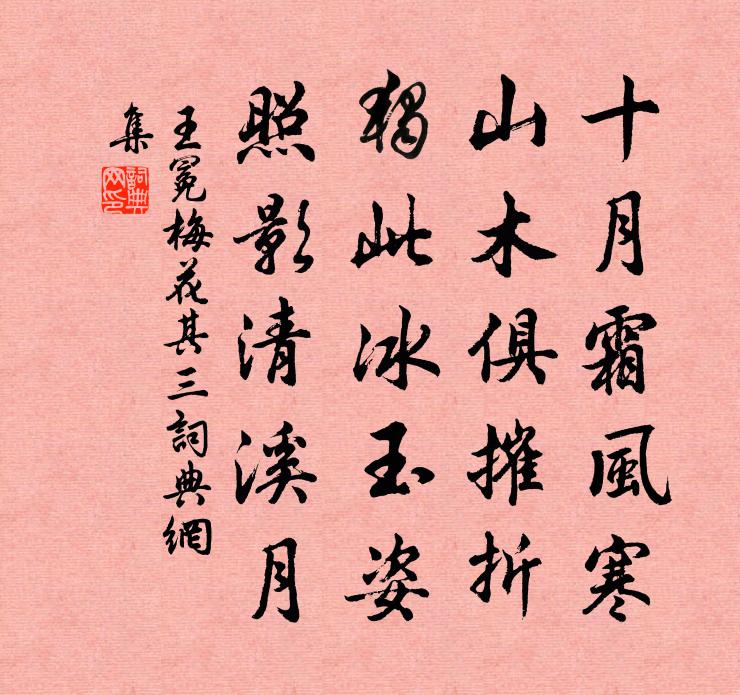 十月霜風寒
山木俱摧折
獨此冰玉姿
照影清溪月
王冕梅花其三詞典網
集
詞典
网印